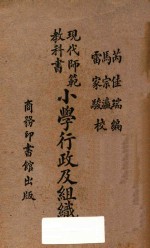 芮佳瑞編
馬宗瀛
雷家駿校
現代師範
教科書
小學行政及組織
商務印書館出版